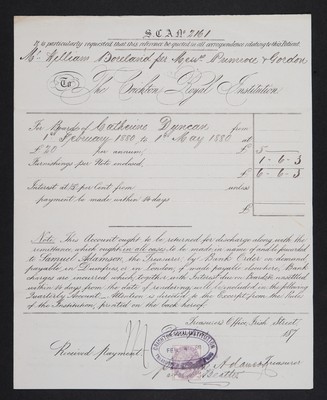 SCA Nº 2161
It is particularly requested that this reference be quoted in all correspondence relating to this Patient
Mr William Boreland for Messrs Primrose & Gordon
To The Crichton Royal Institution
For Board of Catherine Duncan from
1st February 1880 to 1st May 1880 at
£20 per annum, £ 5
Furnishings per Note inclosed 1 - 6 - 5
£ 6 - 6 - 5
Interest at 5 per Cent from unless
payment be made within 14 days
£
Note. This Account ought to be returned for discharge along with the
remittance, which ought in all cases to be made in name of and be forwarded
to Samuel Adamson, the Treasurer, by Bank Order on demand
payable in Dumfries or in London; if made payable elsewhere, Bank
charges are incurred which together with Interest due on Boards unsettled
within 14 days from the date of rendering will be included in the following
Quarterly Account. Attention is directed to the Excerpt from the Rules
of the Institution, printed on the back hereof.
Treasurer's Office, Irish Street,
187
Received payment,
CRICHTON ROYAL INSTITUTION
Treasurer